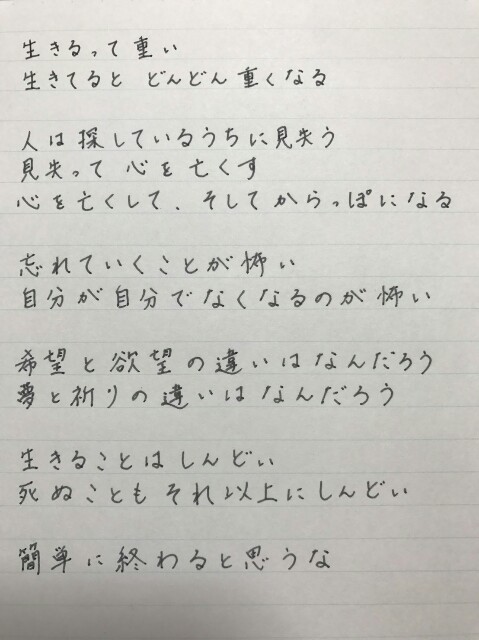 生きるって重い
生きてると どんどん重くなる
人は探しているうちに見失う
見失って 心を亡くす
心を亡くして、そしてからっぽになる
忘れていくことが怖い
自分が自分でなくなるのが怖い
希望と欲望の違いはなんだろう
夢と祈りの違いはなんだろう
生きることはしんどい
死ぬこともそれ以上にしんどい
簡単に終わると思うな